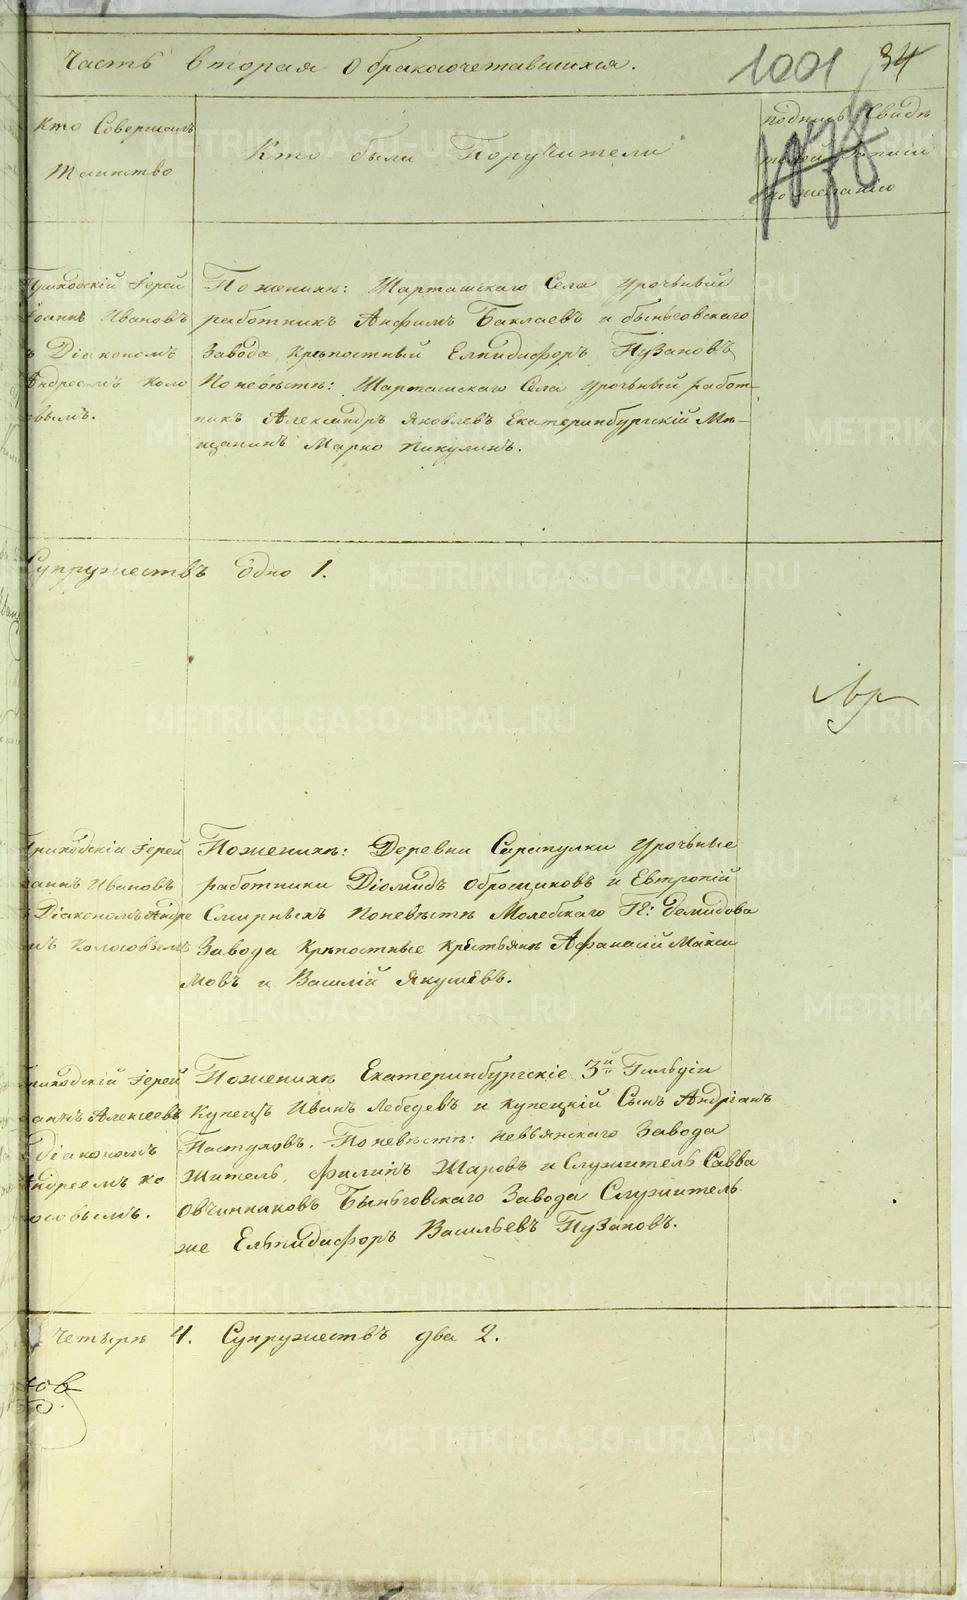 Часть вторая о бракосочетавшихся.
1001 34
Кто Совершалъ
Таинство
Кто были Поручители
подпись Свидѣ
по желанію
Іерей
Ивановъ
Діакономъ
Андреемъ Коло
вымъ.
По женихѣ: Шарташскаго Села урочный
работникъ Анфимъ Баклаевъ и быньговскаго
Завода крѣпостный Елпидифоръ Пузановъ
По невѣстѣ: Шарташскаго Села урочный работ-
никъ Александръ Яковлевъ Екатеринбургскій Мѣ-
щанинъ Марко Пикулинъ.
Супружествъ одно 1.
Іерей
Ивановъ
Діакономъ Андре
Колосовымъ
По женихѣ: Деревни Сарапулки урочные
работники Діомидъ Обросщиковъ и Евтропій
Смирныхъ По невѣстѣ Молебскаго Демидова
Завода крѣпостные крестьяне Афанасій Макси
мовъ и Василій Якушевъ.
Іерей
Алексеевъ
діакономъ
Андреемъ Ко
лосовымъ.
По женихѣ Екатеринбургскіе 3й Гильдіи
Купецъ Иванъ Лебедевъ и купецкій Сынъ Андріанъ
Пастуховъ. По невѣстѣ: невьянскаго Завода
Житель, Филипъ Шаровъ и Служитель Савва
Овчинниковъ Быньговскаго Завода Служитель
же Ельпидифоръ Васильевъ Пузановъ.
Четыре 4. Супружествъ два 2.
METRIKI.GASO-URAL.RU